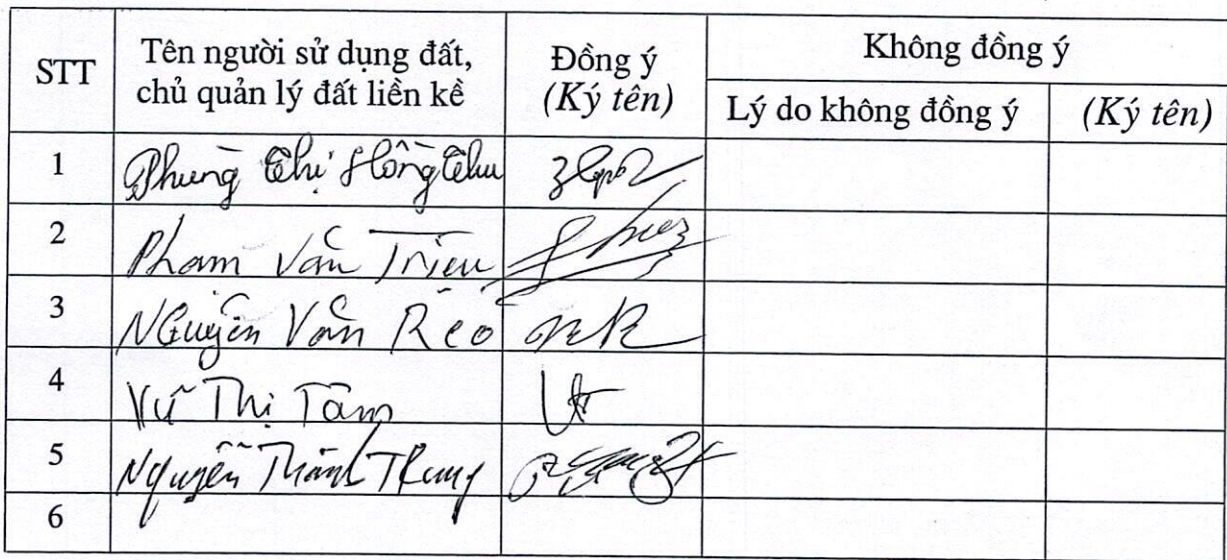 STT
Tên người sử dụng đất,
chủ quản lý đất liền kề
Đồng ý
(Ký tên)
Không đồng ý
Lý do không đồng ý
(Ký tên)
1
Phùng Thị Hồng Thu
2
Phạm Văn Triệu
3
Nguyễn Văn Rẹo
4
Vũ Thị Tâm
5
Nguyễn Thành Trung
6